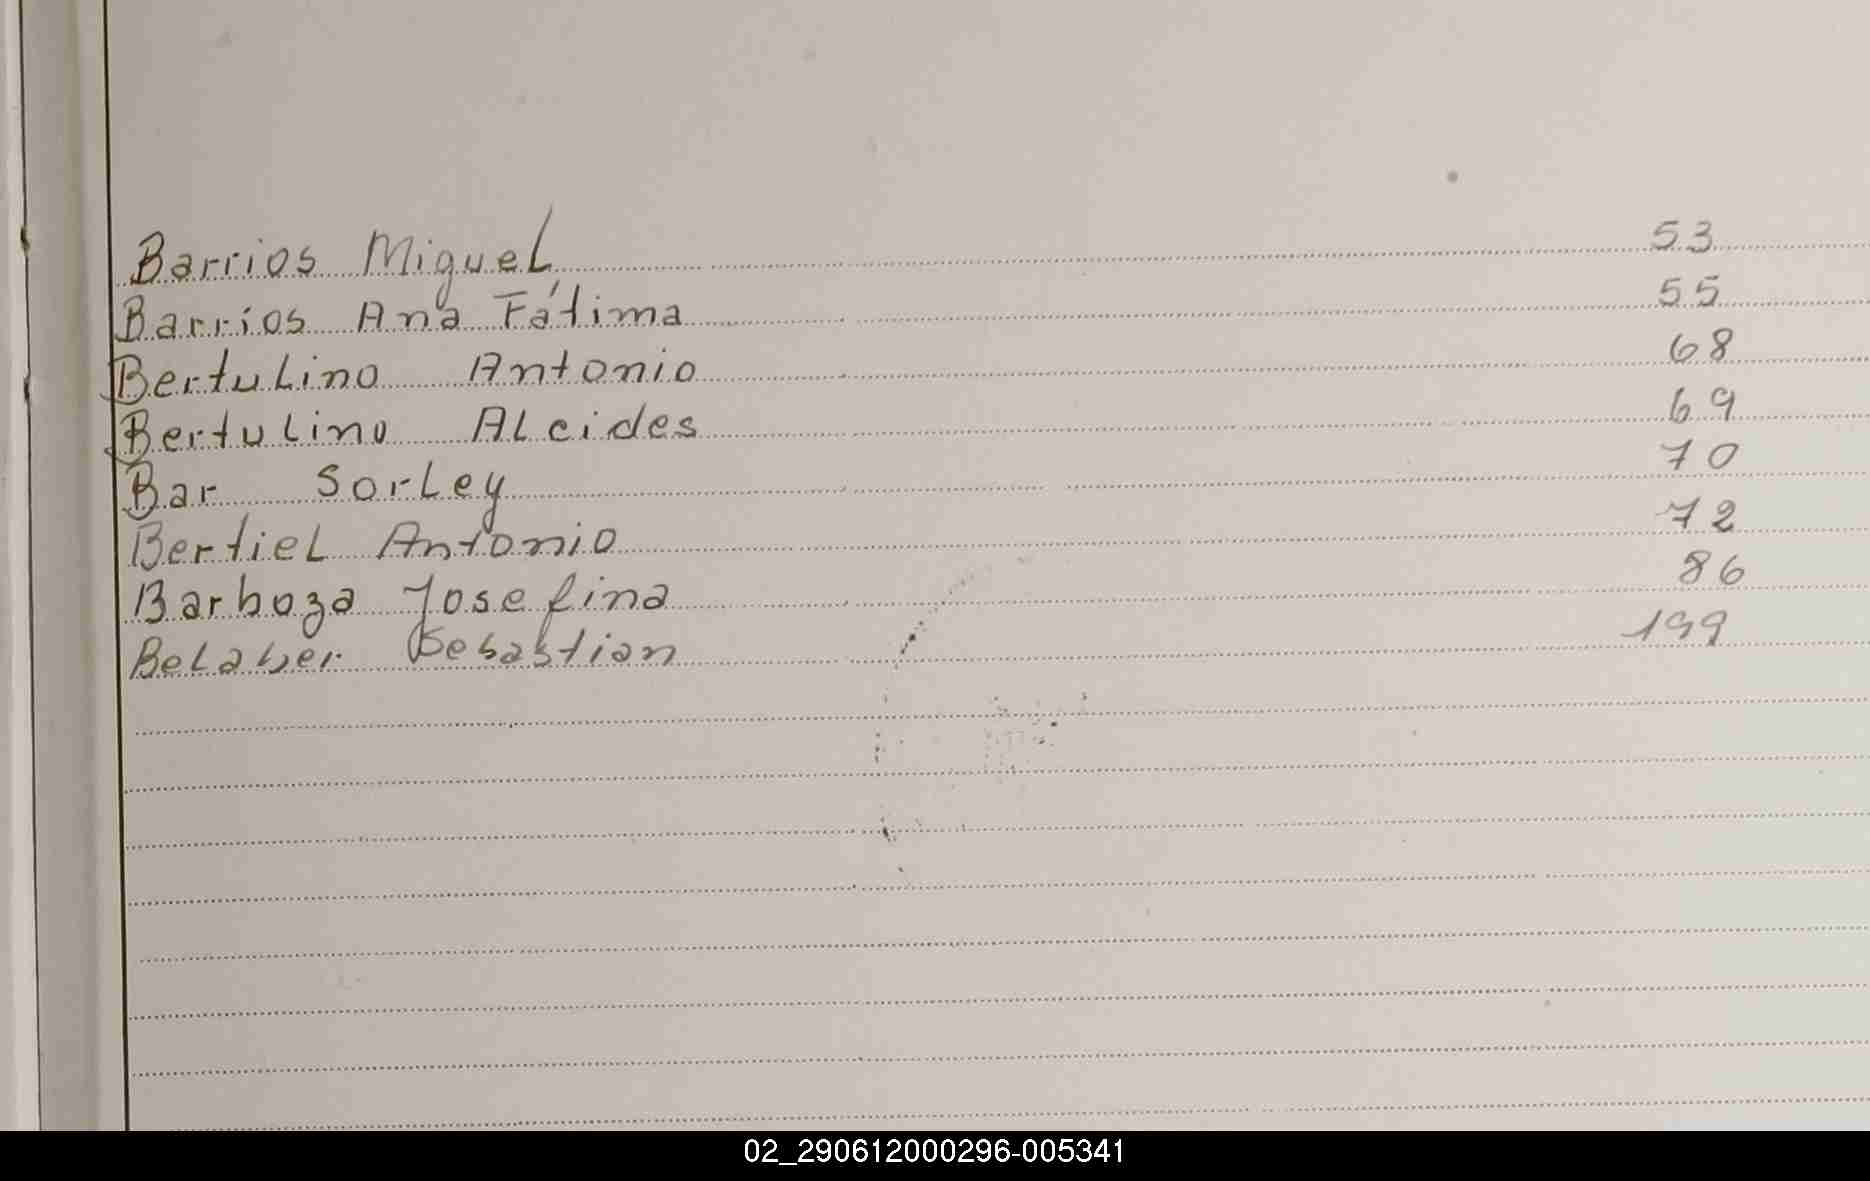 Barrios Miguel 53
Barrios Ana Fátima 55
Bertulino Antonio 68
Bertulino Alcides 69
Bar Sorley 70
Bertiel Antonio 72
Barboza Josefina 86
Sebastian 199
02_290612000296-005341